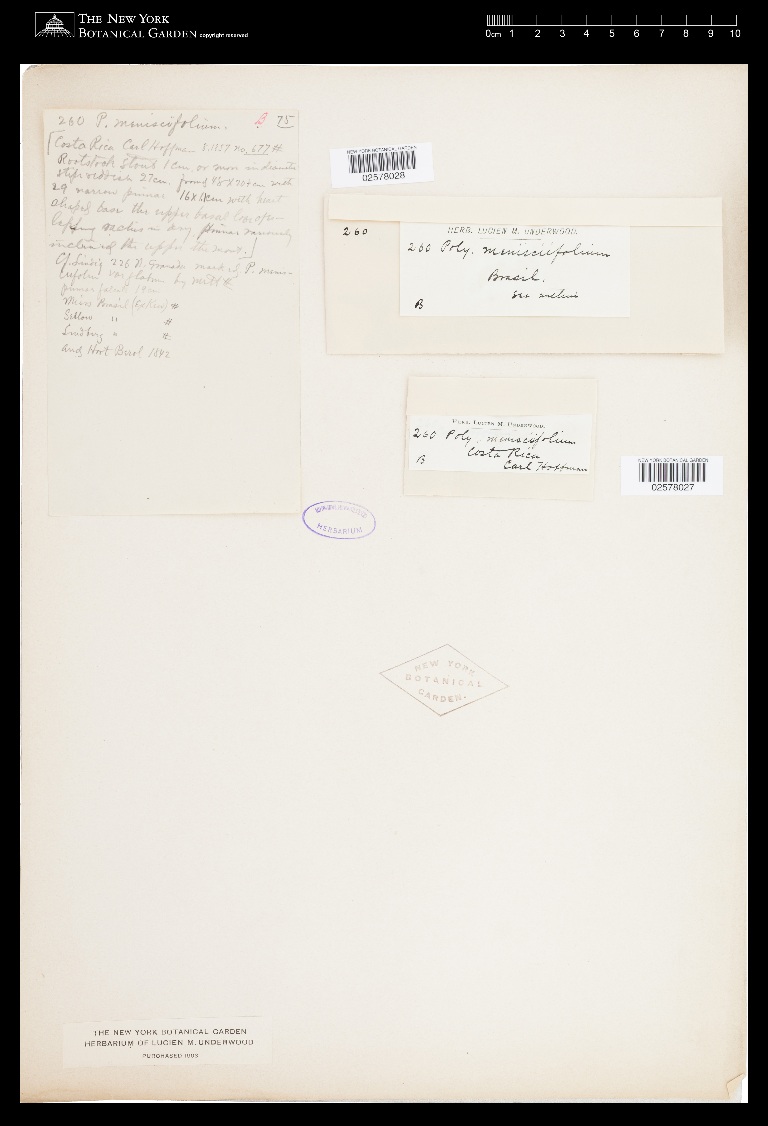 THE NEW YORK
BOTANICAL GARDEN copyright reserved
0cm 1 2 3 4 5 6 7 8 9 10
260 P. meniscifolium. B 75
[Costa Rica Carl Hoffman S. 1857 no. 677 #
Rootstock stout 1 cm or more in diameter
stipe reddish 27 cm. frond 48 X 70+cm with
29 narrow pinnae 16 X cm with heart
shaped base the upper basal lobe often
lapping rachis in dry pinnae variously
inclined the upper the most.]
Cf. Lindig 226 N. Granada marked P. menis-
cifolium var by Mett #
pinnae 19 cm
Miss Brasil (Ex Kew) #
Sellow " #
Lindberg " #
and Hort Berol 1842
NEW YORK BOTANICAL GARDEN
02578028
260
HERB. LUCIEN M. UNDERWOOD.
260 Poly. meniscifolium
Brasil.
B
HERB. LUCIEN M. UNDERWOOD.
260 Poly. meniscifolium
Costa Rica
B Carl Hoffman
NEW YORK BOTANICAL GARDEN
02578027
HERBARIUM
NEW YORK
BOTANICAL
GARDEN.
THE NEW YORK BOTANICAL GARDEN
HERBARIUM OF LUCIEN M. UNDERWOOD
PURCHASED 1908